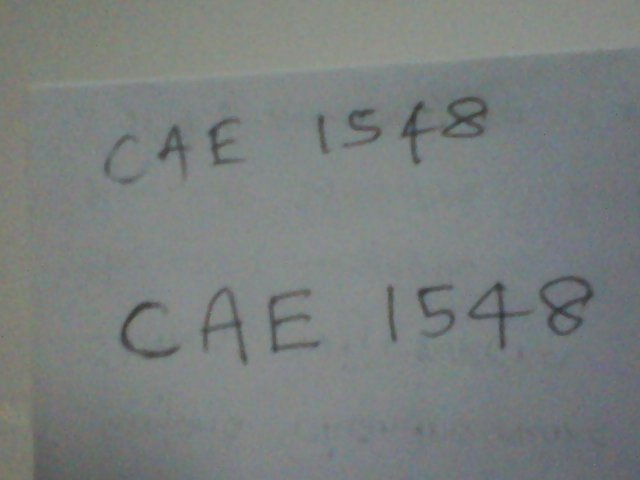 CAE 1548
CAE 1548